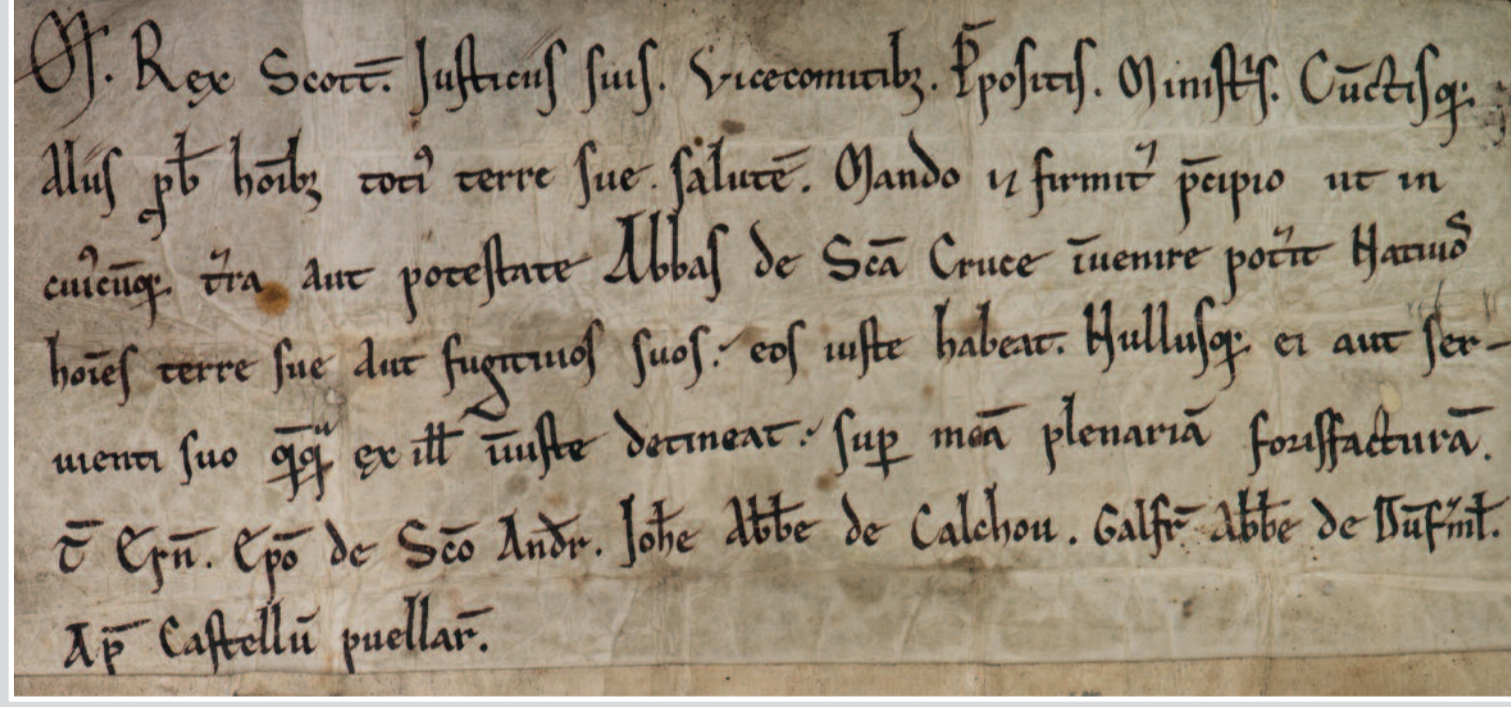 M̃. Rex Scott̄. Justiciis suis. Vicecomitibꝫ. P̄positis. Ministˢis. Cūctisqꝫ
aliis ꝓb̄ hōibꝫ toti᾽ terre sue. salutē. Mando ⁊ firmit᾽ p̄cipio ut in
cui᾽cūqꝫ t᾽ra aut potestate Abbas de Scā Cruce īuenire pot᾽it Natiuō
hoīes terre sue aut fugitiuos suos. eos iuste habeat. Nullusqꝫ ei aut ser-
uienti suo q̄qꝫ ex ill̄ īiuste detineat. suꝑ meā plenariā forisfacturā.
T̄ Ern̄. Ep̄o de Scō Andr̄. Joh̄e Abb̄e de Calchou. Galfr̄ Abb̄e de Dūf᾽ml̄.
Ap̄ Castellū puellar̄.